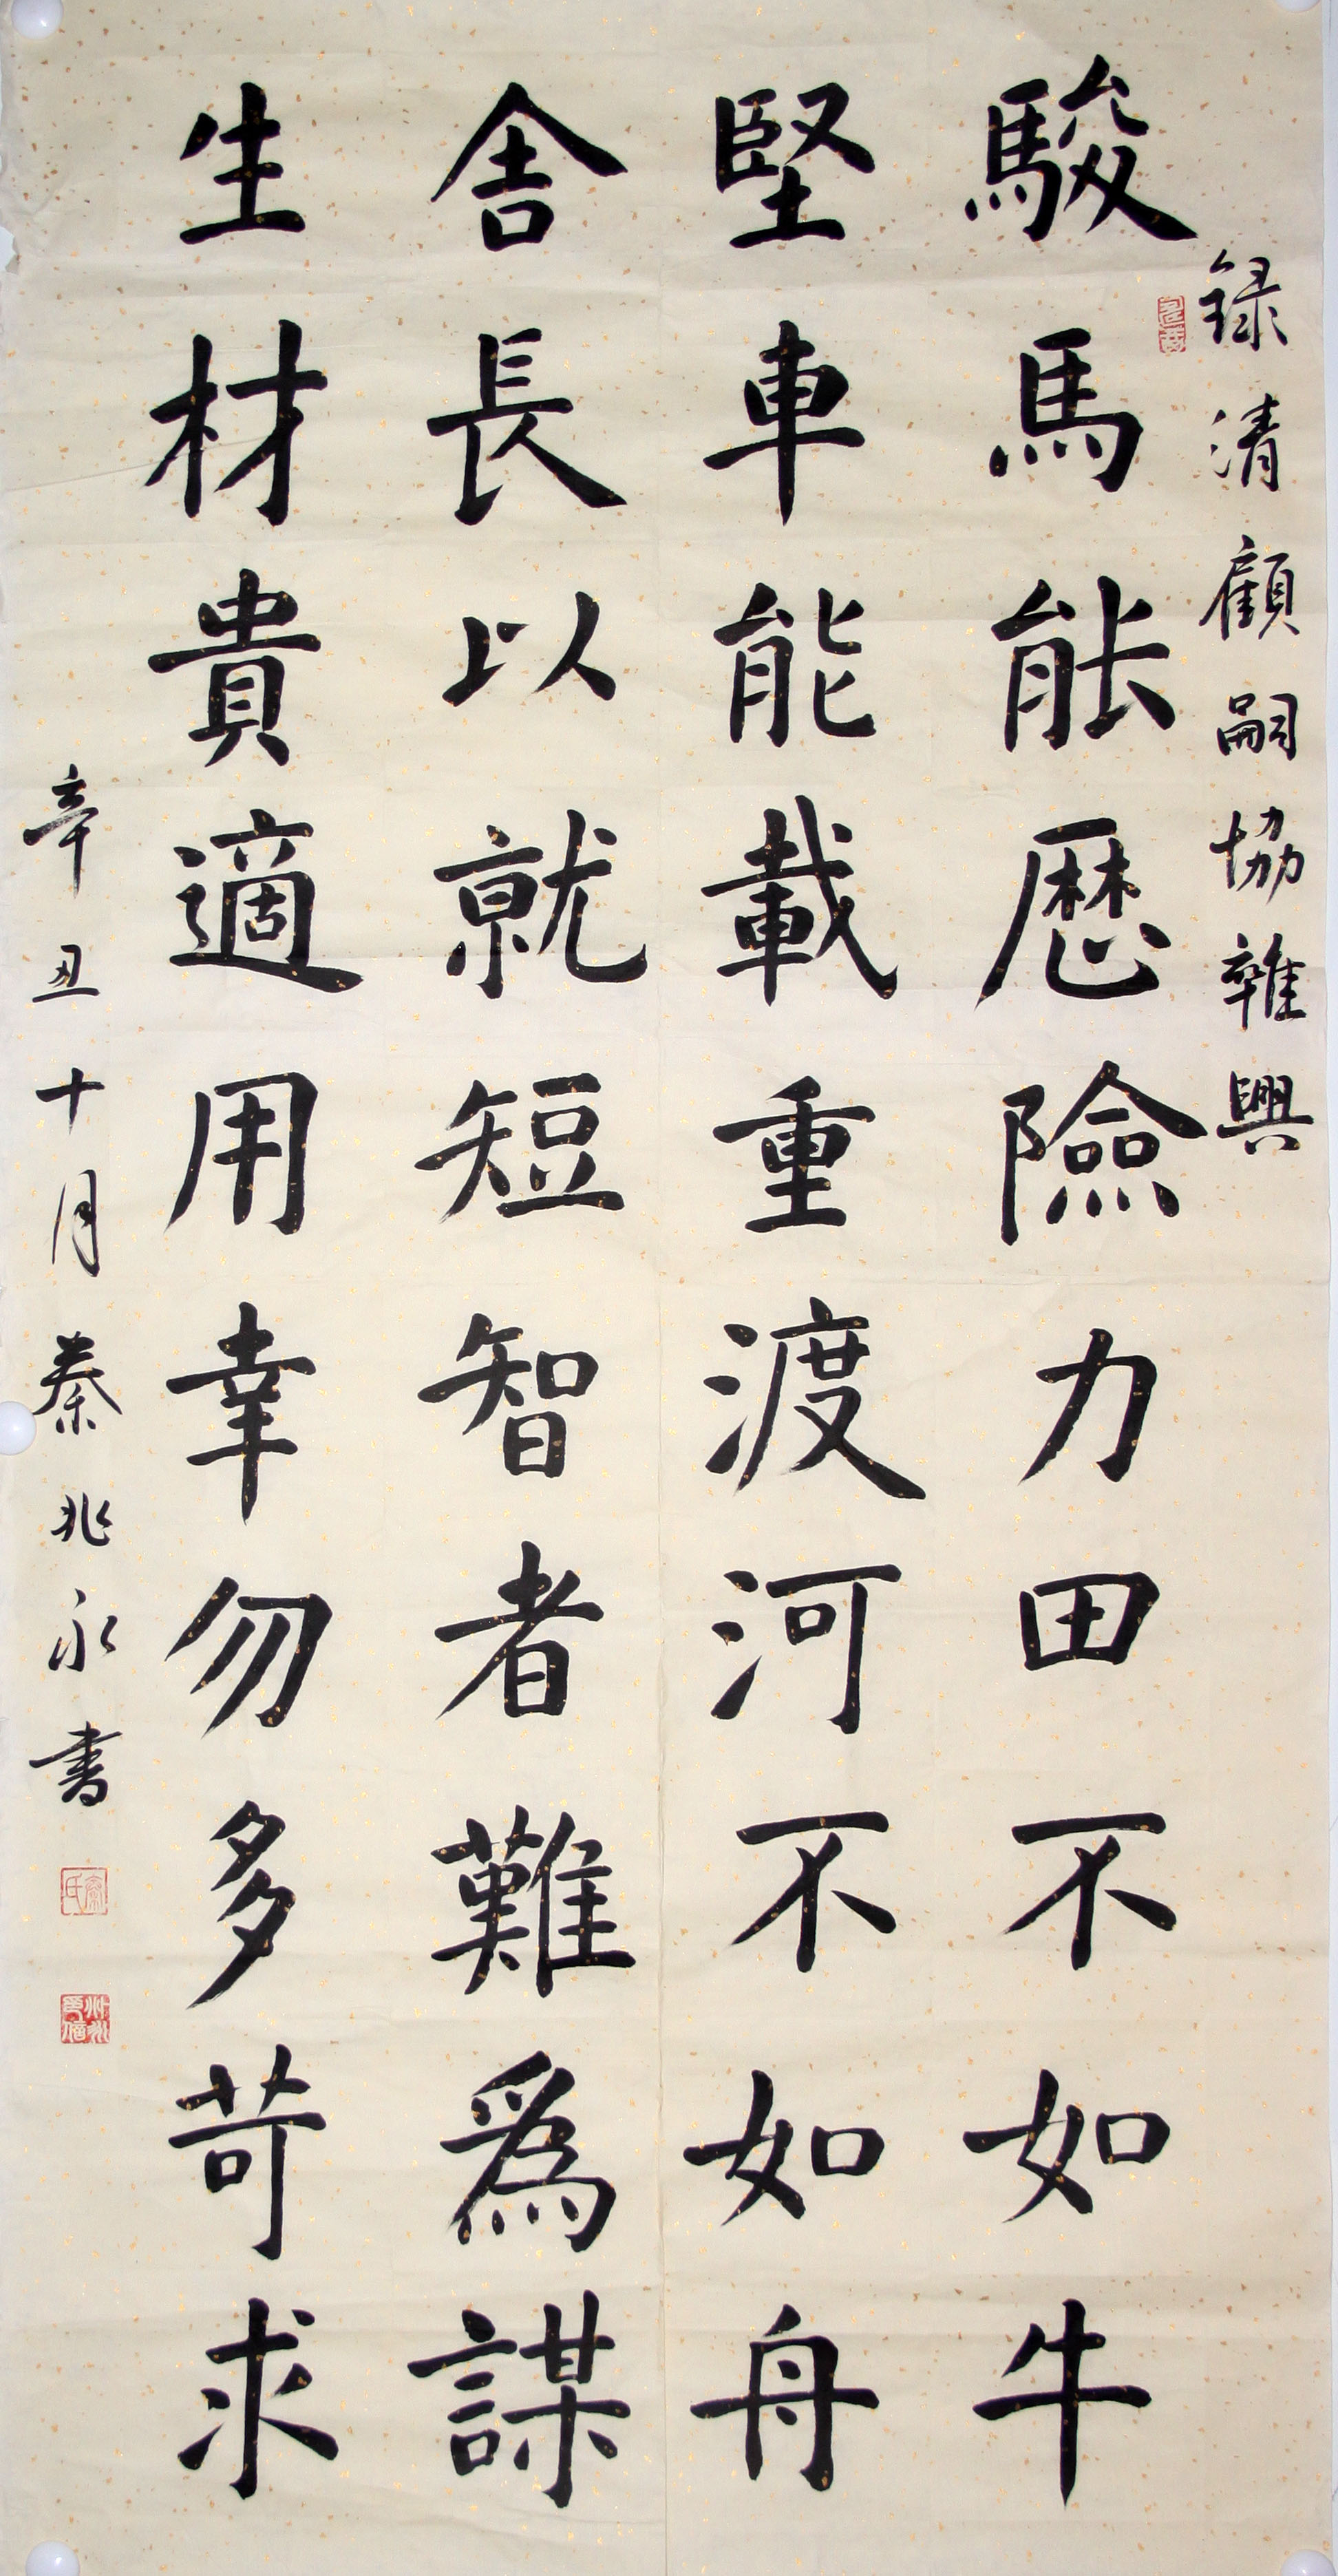 录清顧嗣協雜興
駿馬能歷險力田不如牛
堅車能載重渡河不如舟
舍長以就短智者難爲謀
生材貴適用幸勿多苛求
辛丑十月秦兆永書
秦氏